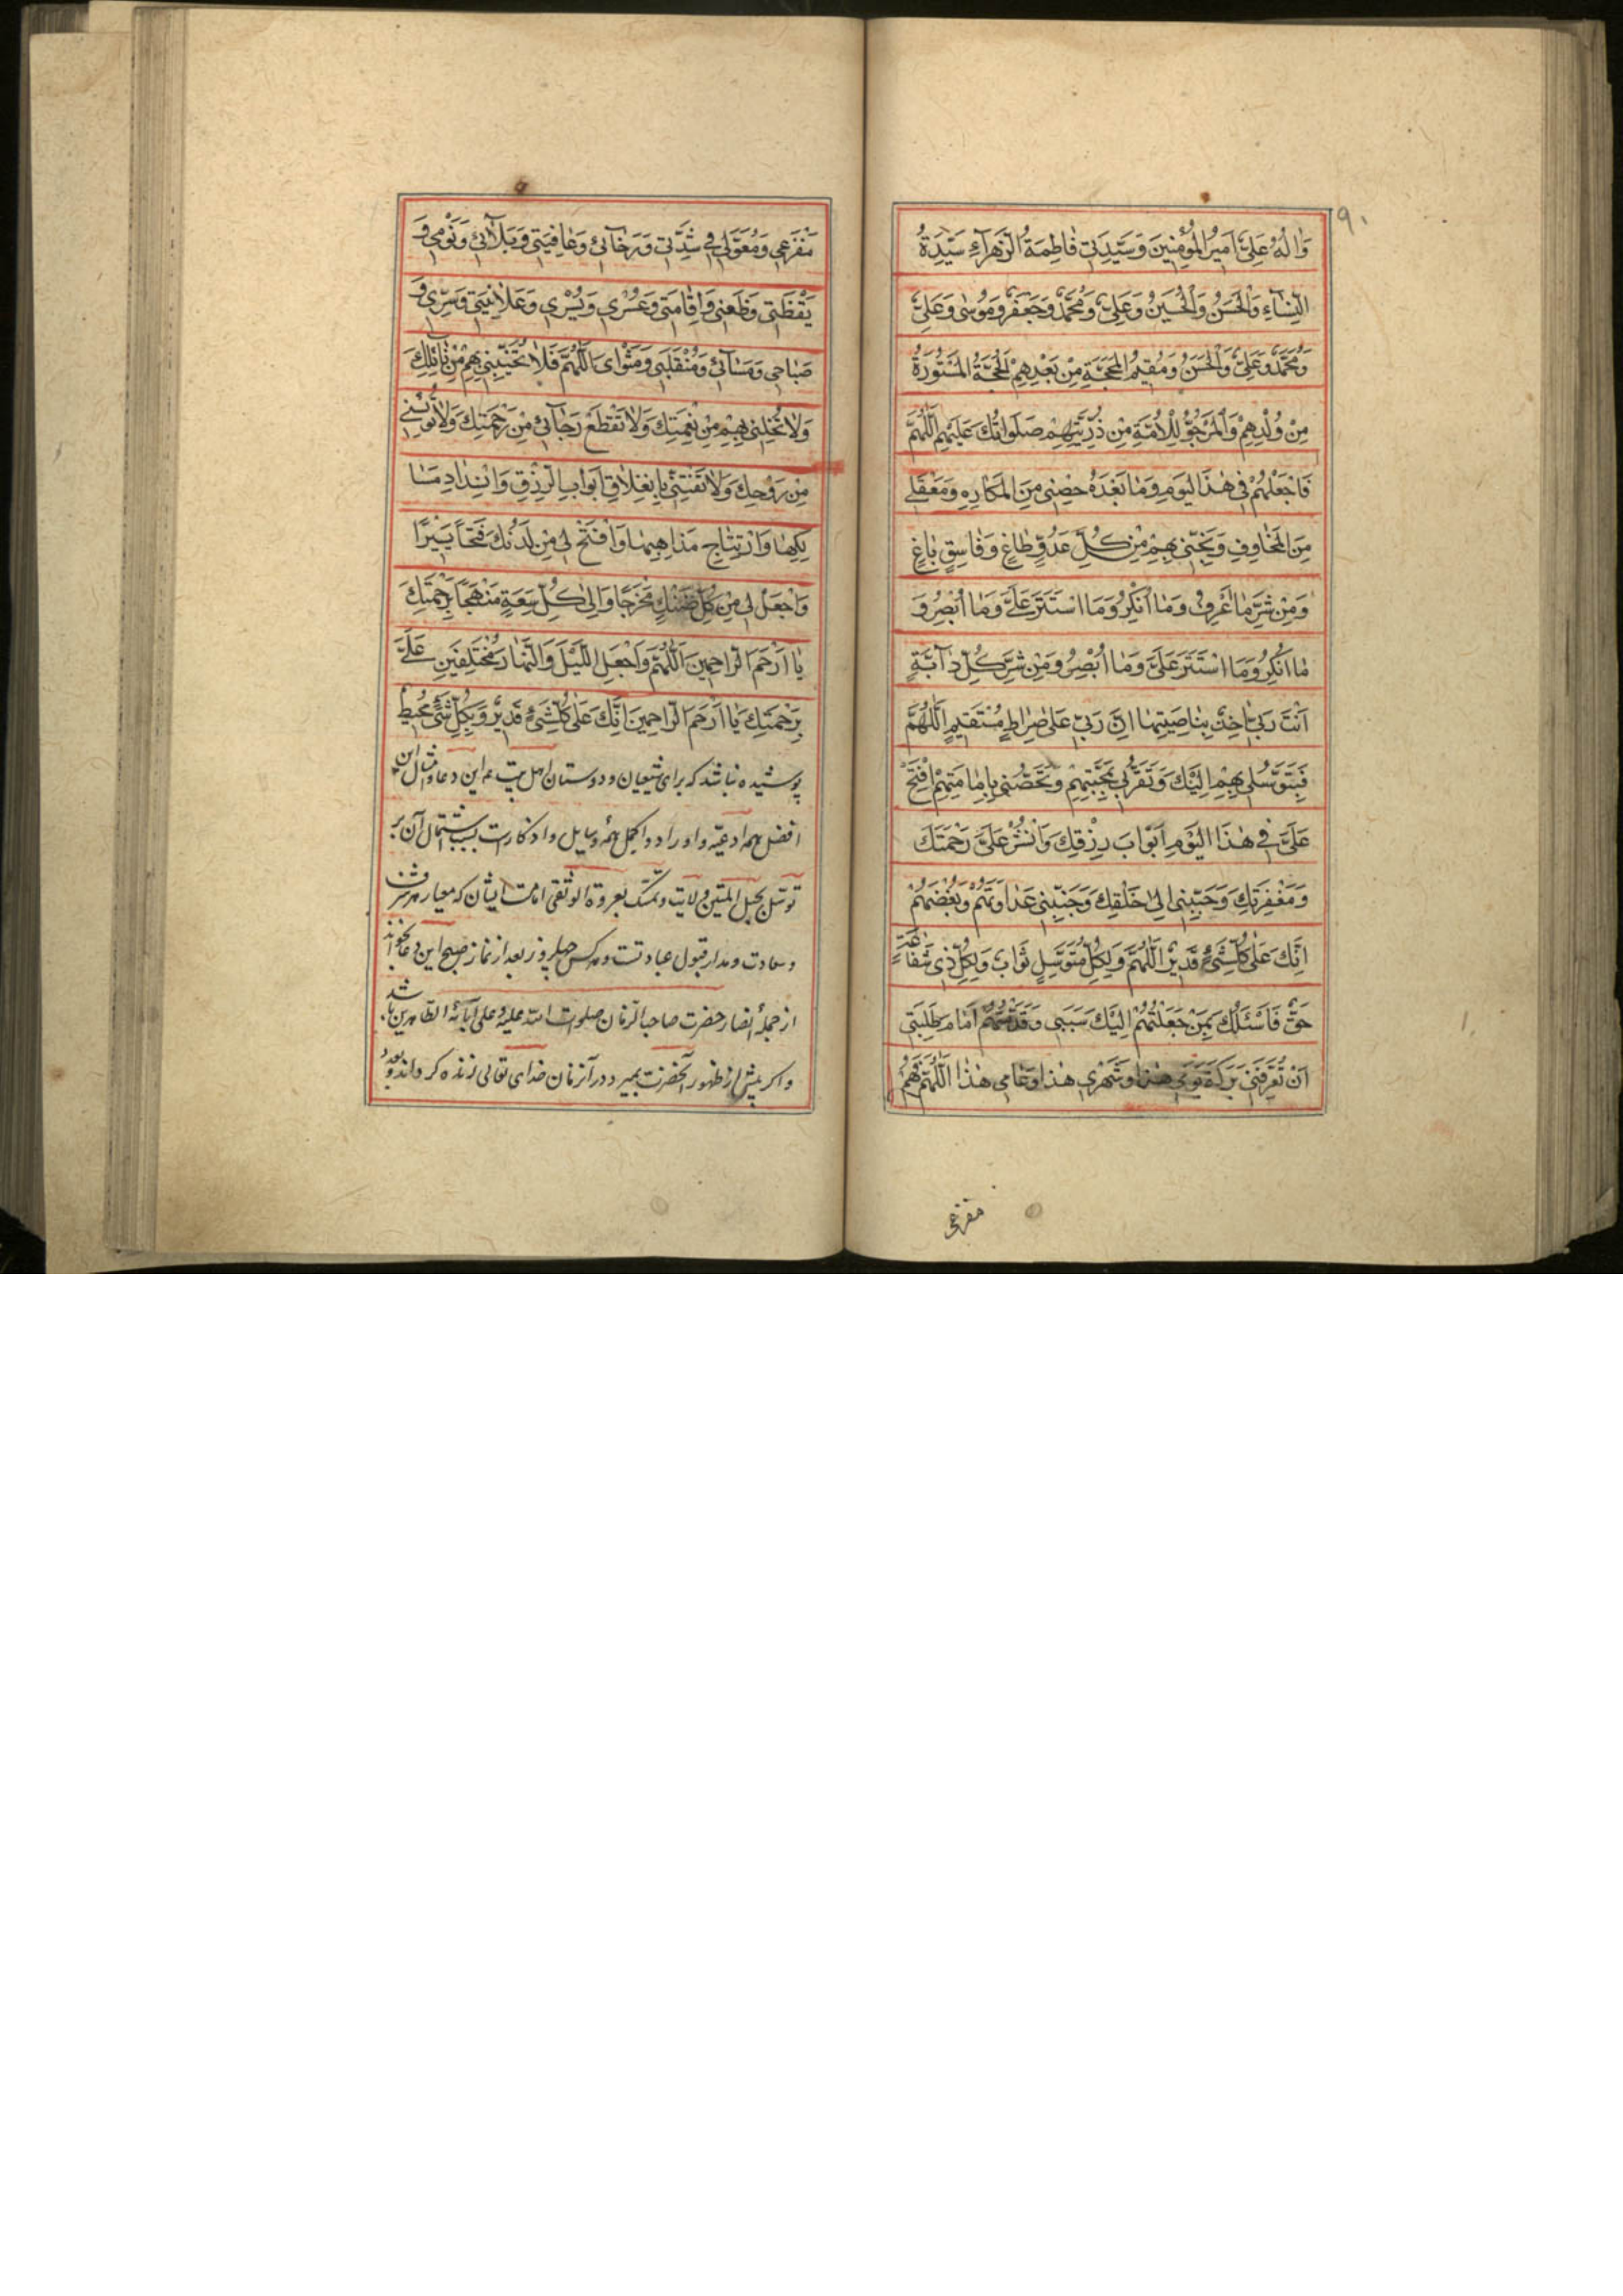 ٩٠
وَاٰلُهُ عَلِیٌّ اَمیرُ المُؤْمِنینَ وَسَیِّدَتی فاطِمَةُ الزَّهْرآءِ سَیِّدَةُ
النِّسآءِ وَالْحَسَنُ وَالْحُسَیْنُ وَعَلِیٌّ وَمُحَمَّدٌ وَجَعْفَرٌ وَمُوسٰی وَعَلِیٌّ
وَمُحَمَّدٌ وَعَلِیٌّ وَالْحَسَنُ وَمُقیمُ الْمَحَجَّةِ مِنْ بَعْدِهِمْ الْحُجَّةُ المَسْتُورَةُ
مِنْ وُلْدِهِمْ وَالْمَرْجُوُّ لِلْاُمَّةِ مِنْ ذُرِّیَّتِهِمْ صَلَوَاتُكَ عَلَیْهِم اَللّٰهُمَّ
فَاجْعَلْهُمْ فی هٰذَا الیَوْمِ وَمٰا بَعْدَهُ حِصْنی مِنَ المَكَارِهِ وَمَعْقَلی
مِنَ المَخٰاوِفِ وَنَجِّنی بِهِمْ مِنْ كُلِّ عَدُوٍّ طٰاغٍ وَفٰاسِقٍ بٰاغٍ
وَمِنْ شَرِّ مٰا اَعْرِفُ وَمٰا اُنْكِرُ وَمَا اسْتَتَرَ عَلَیَّ وَمٰا اُبْصِرُ وَ
مٰا اُنْكِرُ وَمَا اسْتَتَرَ عَلَیَّ وَمٰا اُبْصِرُ وَمِنْ شَرِّ كُلِّ دٰآبَّةٍ
اَنْتَ رَبّی اٰخِذٌ بِنٰاصِیَتِهٰا اِنَّ رَبّی عَلیٰ صِرٰاطٍ مُسْتَقیمٍ اَللّٰهُمَّ
فَبِتَوَسُّلی بِهِمْ اِلَیْكَ وَتَقَرُّبی بِمَحَبَّتِهِمْ وَتَحَصُّنی بِاِمٰامَتِهِمْ افْتَحْ
عَلَیَّ فی هٰذَا الیَوْمِ اَبْوٰابَ رِزْقِكَ وَانْشُرْ عَلَیَّ رَحْمَتَكَ
وَمَغْفِرَتَكَ وَحَبِّبْنی اِلیٰ خَلْقِكَ وَجَنِّبْنی عَدٰاوَتَهُمْ وَبُغْضَهُمْ
اِنَّكَ عَلیٰ كُلِّ شَیْءٍ قَدیرٌ اَللّٰهُمَّ وَلِكُلِّ مُتَوَسِّلٍ ثَوٰابٌ وَلِكُلِّ ذی شَفٰاعَةٍ
حَقٌّ فَاَسْئَلُكَ بِمَنْ جَعَلْتُهُمْ اِلَیْكَ سَبَبی وَقَدَّمْتُهُمْ اَمٰامَ طَلِبَتی
اَنْ تُعَرِّفَنی بَرَكَةَ یَوْمی هٰذا وَشَهْری هٰذا وَعٰامی هٰذٰا اَللّٰهُمَّ فَهُمْ
مفزعی
مَفْزَعی وَمُعَوَّلی فی شِدَّتی وَرَخٰآئی وَعٰافِیَتی وَبَلٰآئی وَنَوْمی وَ
یَقْظَتی وَظَعْنی وَاِقٰامَتی وَعُسْری وَیُسْری وَعَلٰانِیَتی وَسِرّی وَ
صَبٰاحی وَمَسٰآئی وَمُنْقَلَبی وَمَثْوٰای اَللّٰهُمَّ فَلٰا تُخَیِّبْنی بِهِمْ مِنْ نٰائِلِكَ
وَلٰا تُخْلِنی بِهِمْ مِنْ نِعْمَتِكَ وَلٰا تَقْطَعْ رَجٰآئی مِنْ رَحْمَتِكَ وَلٰا تُؤْیِسْنی
مِنْ رَوْحِكَ وَلٰا تَفْتِنّی بِاِنْغِلٰاقِ اَبْوٰابِ الرِّزْقِ وَانْسِدٰادِ مَسٰا
لِكِهٰا وَارْتِتٰاجِ مَذٰاهِبِهٰا وَافْتَحْ لی مِنْ لَدُنْكَ فَتْحًا یَسیرًا
وَاجْعَلْ لی مِنْ كُلِّ ضَنْكٍ مَخْرَجًا وَاِلیٰ كُلِّ سَعَةٍ مَنْهَجًا بِرَحْمَتِكَ
یٰا اَرْحَمَ الرّٰاحِمینَ اَللّٰهُمَّ وَاجْعَلِ اللَّیْلَ وَالنَّهٰارَ مُخْتَلِفَیْنِ عَلَیَّ
بِرَحْمَتِكَ یٰا اَرْحَمَ الرّٰاحِمینَ اِنَّكَ عَلیٰ كُلِّ شَیْءٍ قَدیرٌ وَبِكُلِّ شَیْءٍ مُحیطٌ
پوشیده نباشد که برای شیعیان و دوستان اهل بیت ع این دعا و امثال این
افضل همه ادعیه و اوراد و اکمل همهٔ وسایل و اذکار است بسبب اشتمال آن بر
توسّل بحبل المتین ولایت و تمسّک بعروة الوثقی امامت ایشان که معیار معرفت
و سعادت و مدار قبول عبادتست و هرکس چهل روز بعد از نماز صبح این دعا بخواند
از جملهٔ انصار حضرت صاحب الزمان صلوات الله علیه و علی آبائه الطاهرین باشد
و اگر پیش از ظهور آنحضرت بمیرد در آنزمان خدای تعالی زنده گرداند و بعد